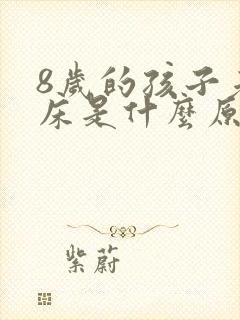 8歲的孩子
床是什麼原
紫蔚